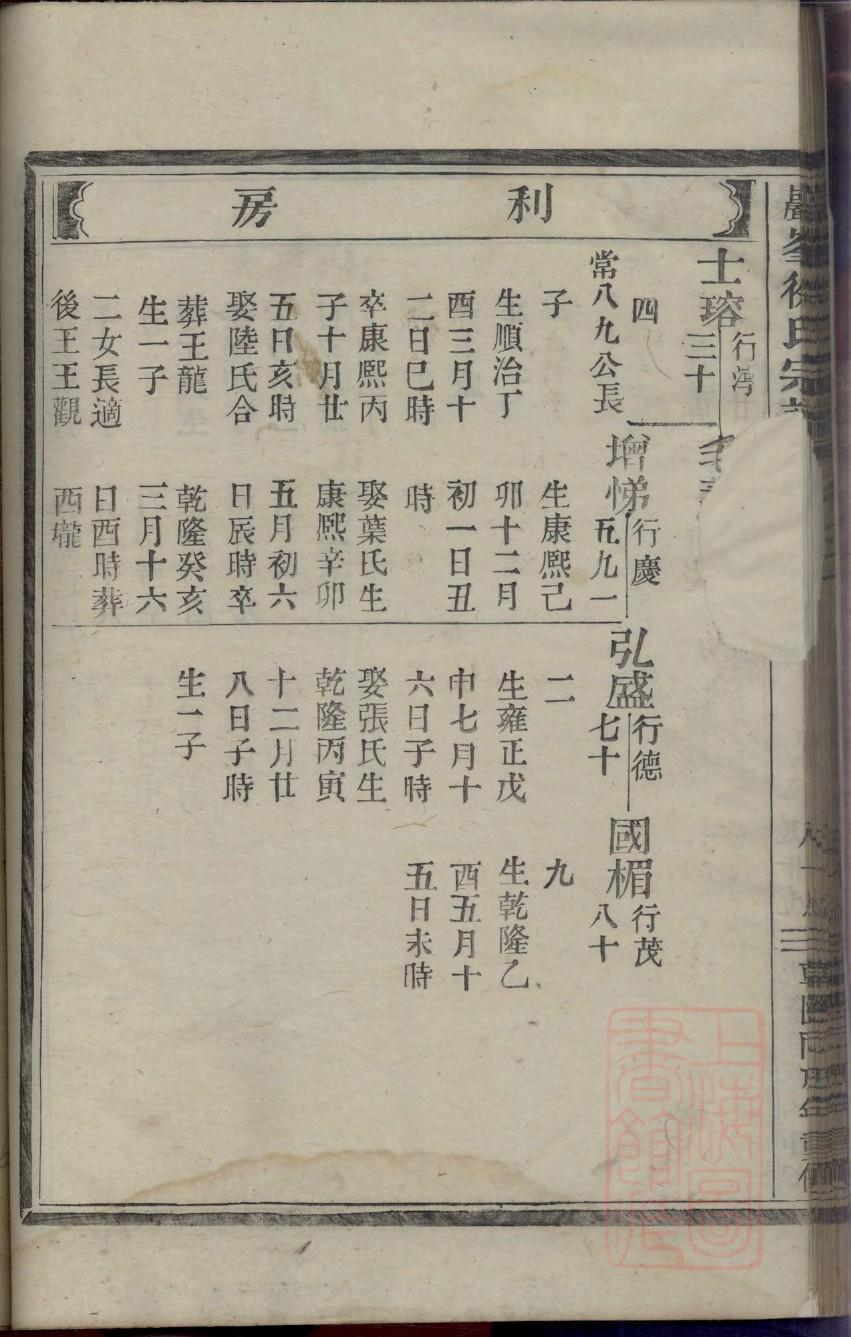 利房
士瑢
行灣
三十
四
常八九公長
子
生順治丁
酉三月十
二日巳時
卒康熙丙
子十月廿
五日亥時
娶陸氏合
葬王龍
生一子
二女長適
後王王觀
增悌
行慶
五九一
生康熙己
卯十二月
初一日丑
時
娶葉氏生
康熙辛卯
五月初六
日辰時卒
乾隆癸亥
三月十六
日酉時葬
西壠
弘盛
行德
七十
二
生雍正戊
申七月十
六日子時
娶張氏生
乾隆丙寅
十二月廿
八日子時
生一子
國楣
行茂
八十
九
生乾隆乙
酉五月十
五日未時
上海圖
書館藏